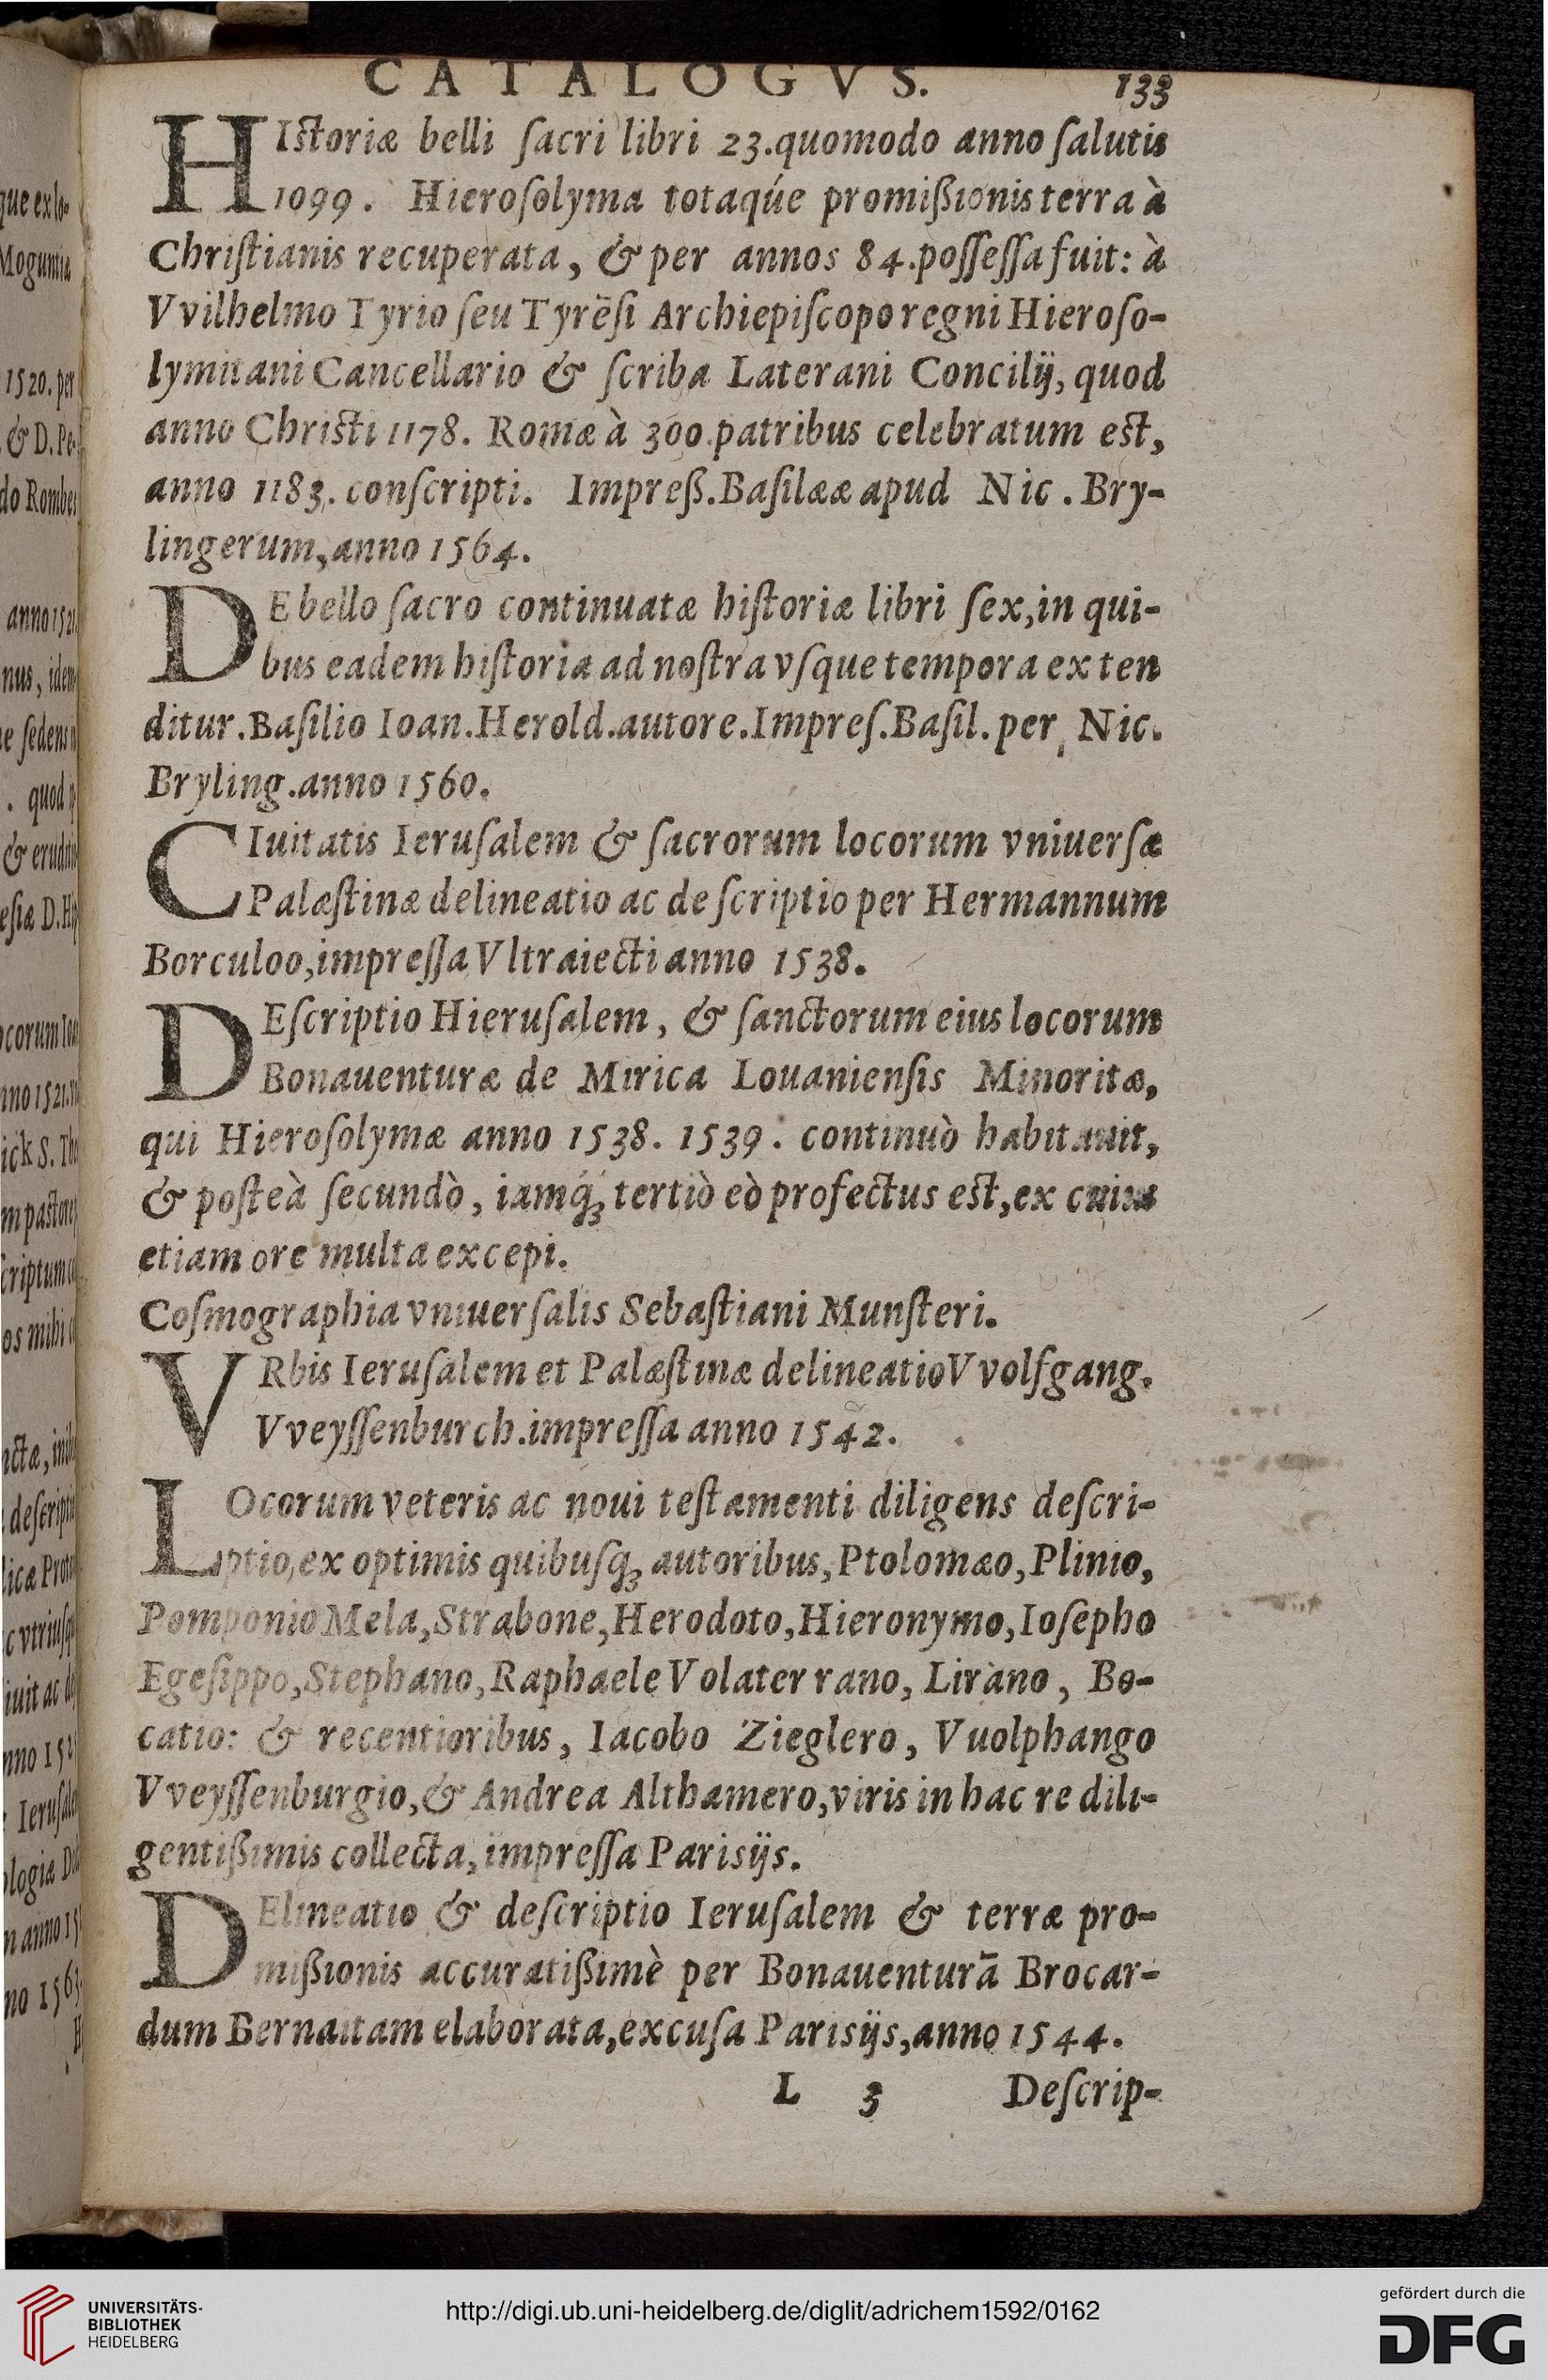 CATALOGVS. 133
HIstoriæ belli ſacri libri 23.quomodo anno ſalutis
1099. Hieroſolyma totaqúe promißionis terra à
Chriſtianis recuperata, & per annos 84.poſſeſſa fuit: à
Vvilhelmo Tyrio ſeu Tyrēſi Archiepiſcopo regni Hieroſo-
lymitani Cancellario & ſcriba Laterani Concilij, quod
anno Christi 1178. Romæ à 300.patribus celebratum est,
anno 1183. conſcripti. Impreß.Baſilææ apud Nic. Bry-
lingerum, anno 1564.
DE bello ſacro continuatæ hiſtoriæ libri ſex, in qui-
bus eadem hiſtoria ad noſtra vſque tempora exten
ditur.Baſilio Ioan.Herold.autore.Impreſ.Baſil. per Nic.
Bryling.anno 1560.
CIuitatis Ieruſalem & ſacrorum locorum vniuerſæ
Palæſtinæ delineatio ac deſcriptio per Hermannum
Borculoo, impreſſa Vltraiecti anno 1538.
DEſcriptio Hieruſalem, & ſanctorum eius locorum
Bonauenturæ de Mirica Louanienſis Minoritæ,
qui Hieroſolymæ anno 1538. 1539. continuò habitauit,
& poſteà ſecundò, iamq́ꝫ tertiò eò profectus est, ex cuius
etiam ore multa excepi.
Coſmographia vniuerſalis Sebaſtiani Munſteri.
VRbis Ieruſalem et Palæſtinæ delineatio Vvolfgang.
Vveyſſenburch.impreſſa anno 1542.
LOcorum veteris ac noui teſtamenti diligens deſcri-
ptio, ex optimis quibuſqꝫ autoribus, Ptolomæo, Plinio,
Pomponio Mela, Strabone, Herodoto, Hieronymo, Ioſepho
Egeſippo, Stephano, Raphaele Volaterrano, Lirano, Bo-
catio: & recentioribus, Iacobo Zieglero, Vuolphango
Vveyſſenburgio, & Andrea Althamero, viris in hac re dili-
gentißimis collecta, impreſſa Parisijs.
DElineatio & deſcriptio Ieruſalem & terræ pro-
mißionis accuratißimè per Bonauenturā Brocar-
dum Bernaitam elaborata, excuſa Parisijs, anno 1544.
L 3 Deſcrip-
que ex lo-
Moguntiæ
1520. per
& D. Pe-
anno 1521
nus, idem
. quod
ick S.
no 1563.
UNIVERSITÄTS-
BIBLIOTHEK
HEIDELBERG
http://digi.ub.uni-heidelberg.de/diglit/adrichem1592/0162
gefördert durch die
DFG